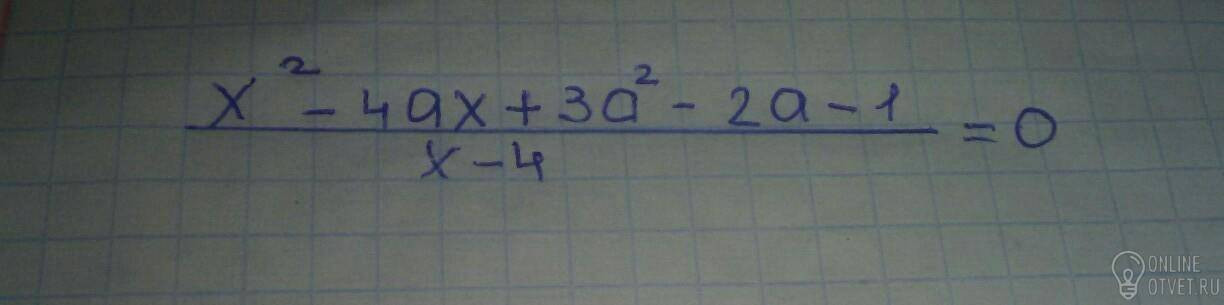 x² - 4ax + 3a² - 2a - 1
x - 4
= 0
ONLINE
OTVET.RU